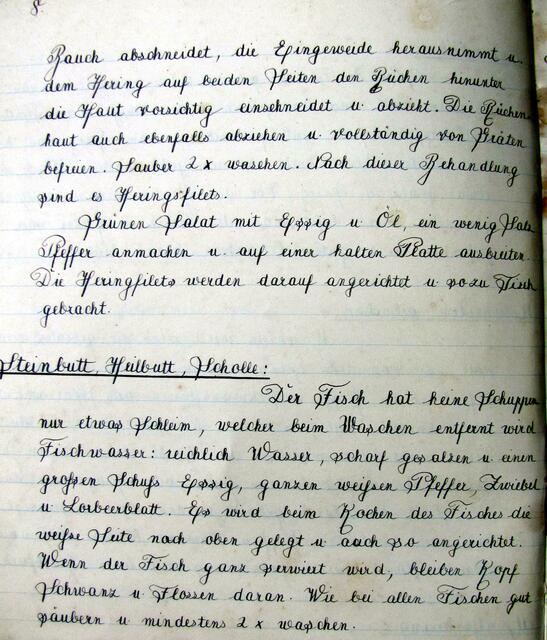 8.
Bauch abschneidet, die Eingeweide herausnimmt u.
dem Hering auf beiden Seiten den Rücken hinunter
die Haut vorsichtig einschneidet u. abzieht. Die Rücken
haut auch ebenfalls abziehen u. vollständig von Gräten
befreien. Sauber 2 x waschen. Nach dieser Behandlung
sind es Heringsfilets.
Grünen Salat mit Essig u. Öl, ein wenig Salz
Pfeffer anmachen u. auf einer kalten Platte ausbreiten.
Die Heringfilets werden darauf angerichtet u. so zu Tisch
gebracht.
Steinbutt, Heilbutt, Scholle:
Der Fisch hat keine Schuppen
nur etwas Schleim, welcher beim Waschen entfernt wird
Fischwasser: reichlich Wasser, scharf gesalzen u. einen
großen Schuß Essig, ganzen weißen Pfeffer, Zwiebel
u. Lorbeerblatt. Es wird beim Kochen des Fisches die
weiße Seite nach oben gelegt u. auch so angerichtet.
Wenn der Fisch ganz serviert wird, bleiben Kopf
Schwanz u. Flossen daran. Wie bei allen Fischen gut
säubern u. mindestens 2 x waschen.